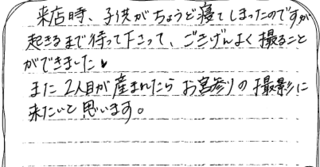 来店時、子供がちょうど寝てしまったのですが
起きるまで待って下さって、ごきげんよく撮ること
ができました♥
また2人目が産まれたらお宮参りの撮影に
来たいと思います。